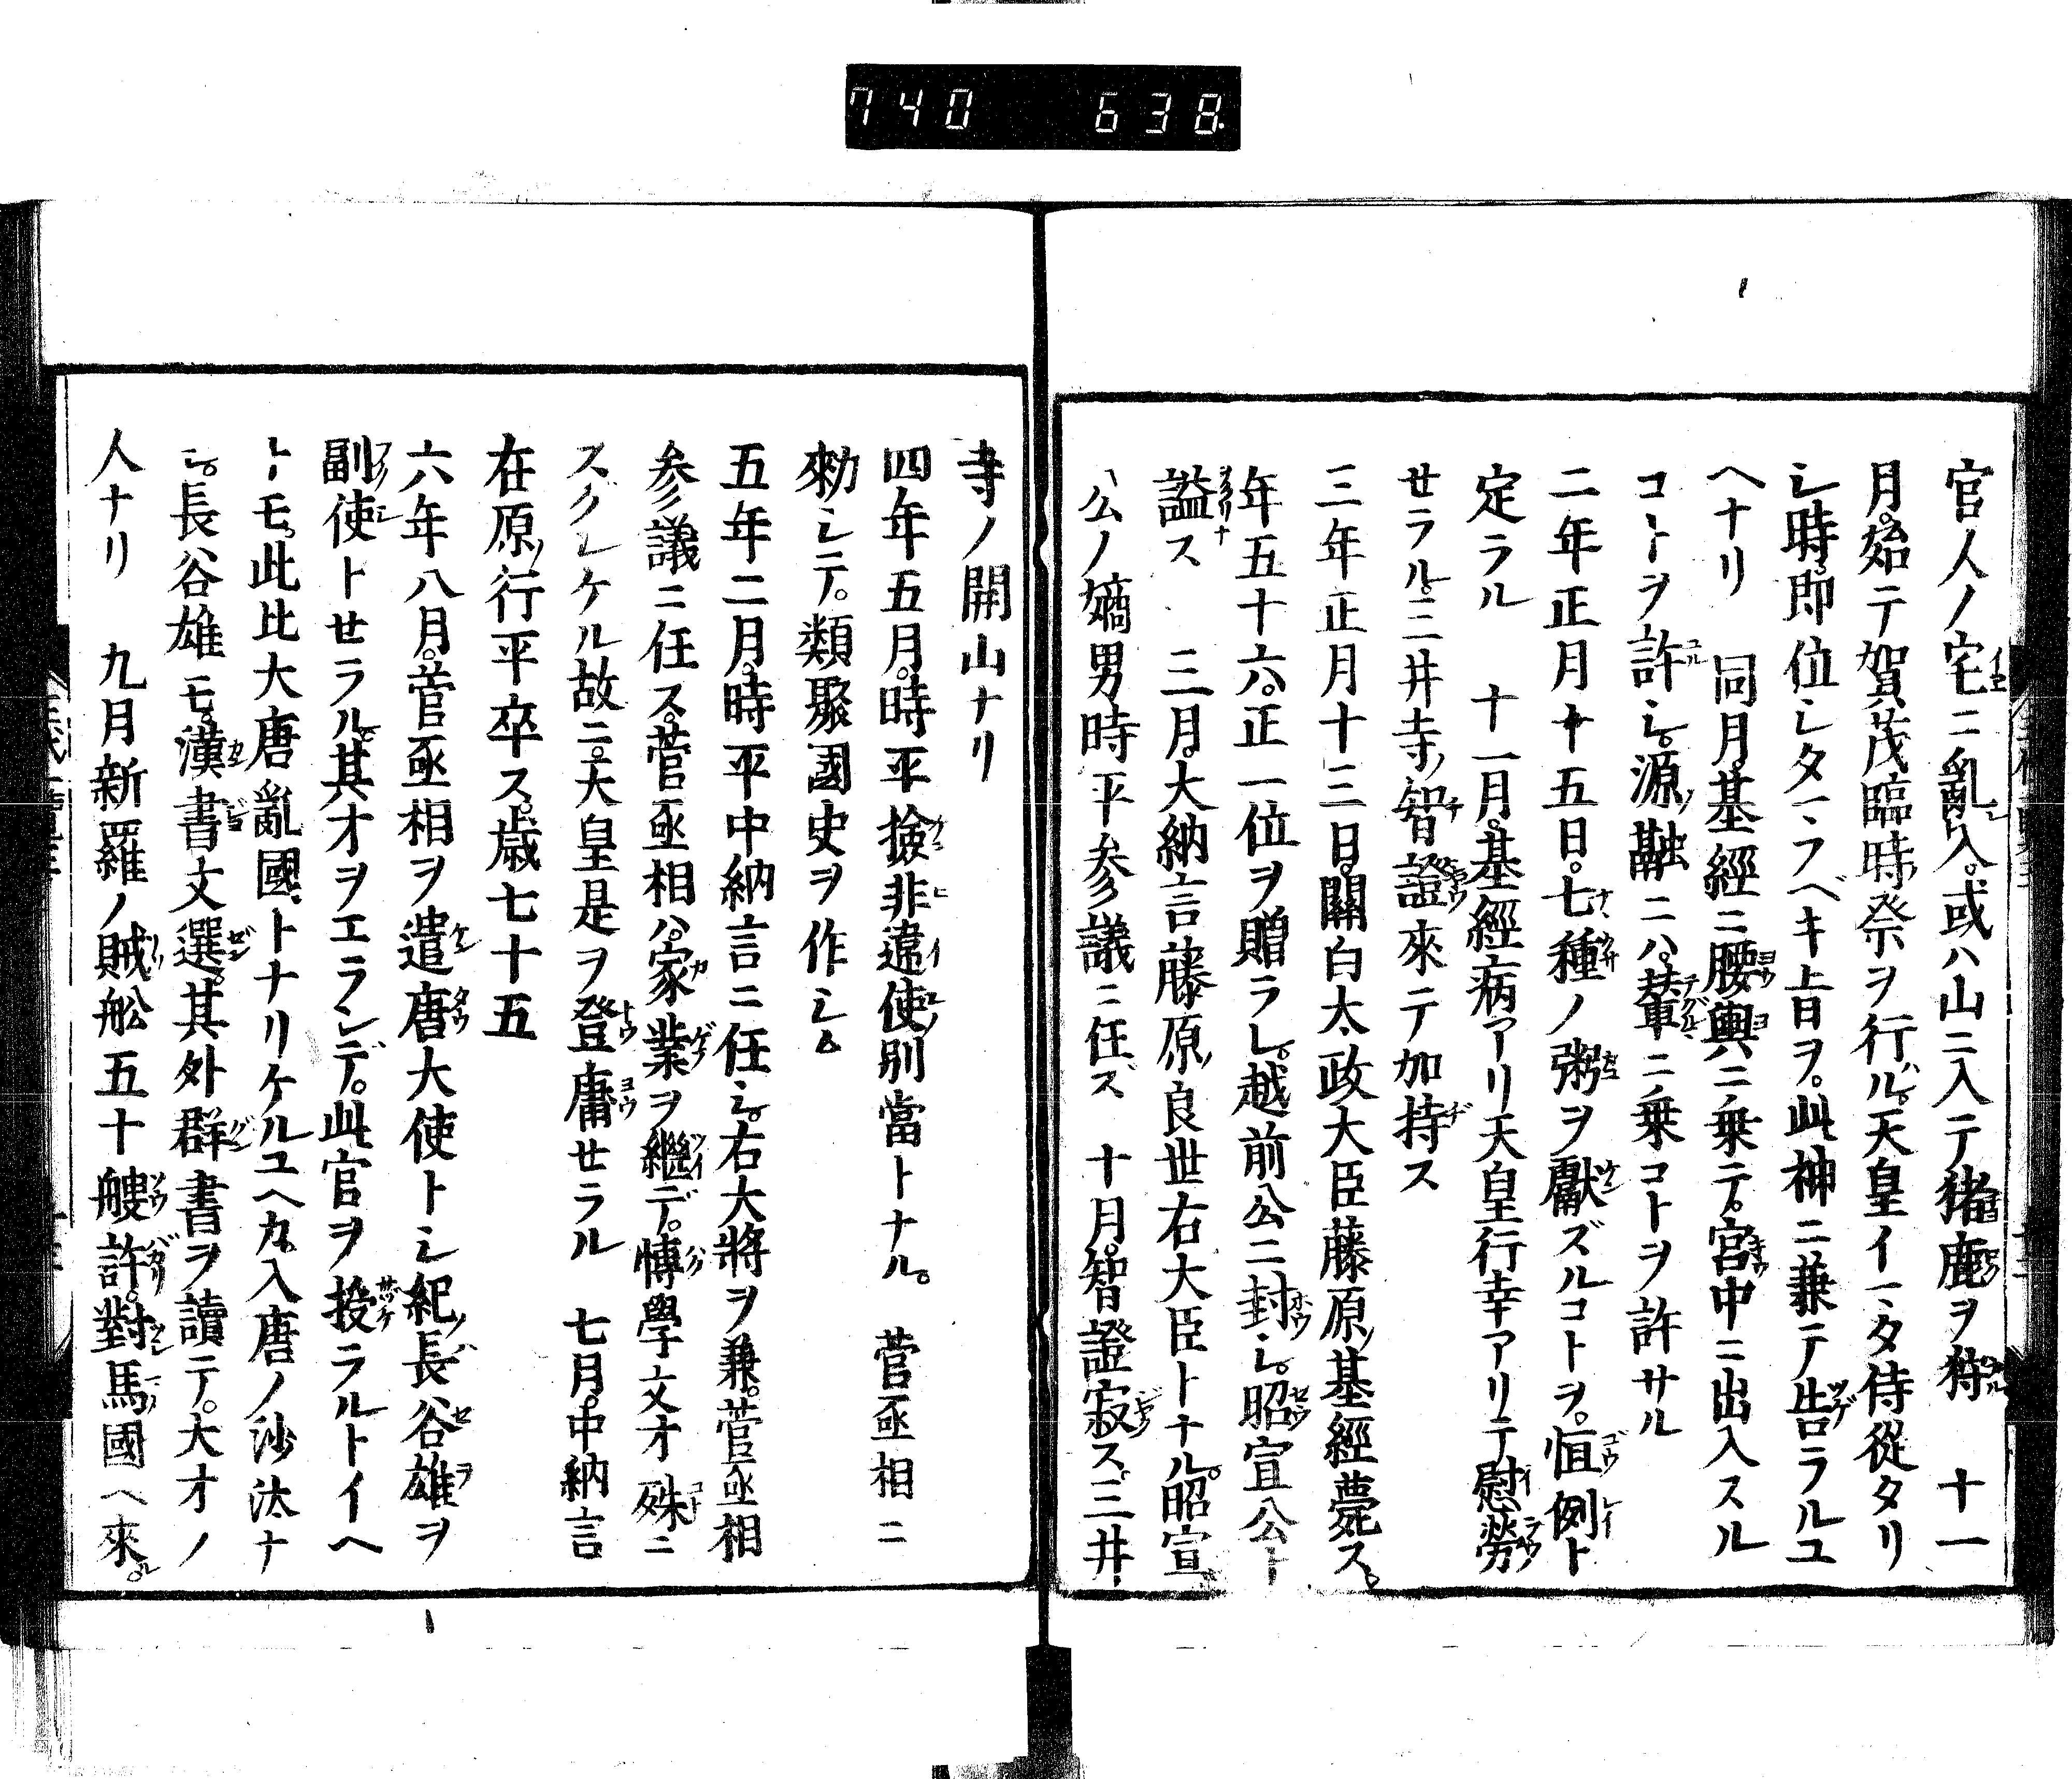 740 638
官人ノ宅ニ亂入。或ハ山ニ入テ猪鹿ヲ狩 十一
月。始テ賀茂臨時祭ヲ行ル。天皇イマタ侍從タリ
シ時。即位シタマフベキ旨ヲ。此神ニ兼テ告ラルユ
ヘナリ 同月。基經ニ腰輿ニ乗テ。宮中ニ出入スル
コトヲ許シ。源融ニハ。輦ニ乗コトヲ許サル
二年正月十五日。七種ノ粥ヲ獻ズルコトヲ。恒例ト
定ラル 十一月。基經病アリ天皇行幸アリテ慰勞
せラル。三井寺ノ智證來テ加持ス
三年正月十三日。關白太政大臣藤原ノ基經薨ス。
年五十六。正一位ヲ贈ラレ。越前公ニ封シ。昭宣公ト
謚ス 三月。大納言藤原ノ良世右大臣トナル。昭宣
公ノ嫡男時平參議ニ任ズ 十月。智證寂ス。三井
寺ノ開山ナリ
四年五月。時平撿非違使ノ別當トナル。 菅丞相ニ
勅シテ。類聚國史ヲ作シム
五年二月。時平中納言ニ任シ。右大將ヲ兼。菅丞相
參議ニ任ス。菅丞相ハ。家業ヲ繼デ。博學文才殊ニ
スクレケル故ニ。大皇是ヲ登庸せラル 七月。中納言
在原ノ行平卒ス。歳七十五
六年八月。菅丞相ヲ遣唐大使トシ紀ノ長谷雄ヲ
副使トせラル。其才ヲエランデ。此官ヲ授ラルトイヘ
トモ。此比大唐亂國トナリケルユヘカ。入唐ノ沙汰ナ
シ。長谷雄モ。漢書文選。其外群書ヲ讀テ。大才ノ
人ナリ 九月新羅ノ賊舩五十艘許。對馬國ヘ來。